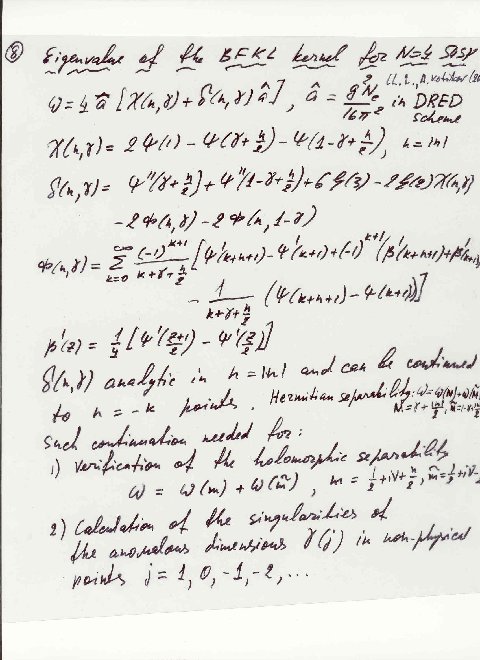 ⑧ Eigenvalue of the BFKL kernel for N=4 SUSY
(L.L., A. Kotikov
ω = 4 â [χ(n,γ) + δ(n,γ) â], â = g²N_c/16π² in DRED scheme
χ(n,γ) = 2Ψ(1) - Ψ(γ+n/2) - Ψ(1-γ+n/2), n = |n|
δ(n,γ) = Ψ''(γ+n/2) + Ψ''(1-γ+n/2) + 6ζ(3) - 2ζ(2)χ(n,γ)
- 2Φ(n,γ) - 2Φ(n,1-γ)
Φ(n,γ) = ∑_{k=0}^{∞} (-1)^{k+1}/(k+γ+n/2) [Ψ'(k+n+1) - Ψ'(k+1) + (-1)^{k+1} (β'(k+n+1) + β'(k+1))
- 1/(k+γ+n/2) (Ψ(k+n+1) - Ψ(k+1))]
β'(z) = 1/4 [Ψ'((z+1)/2) - Ψ'(z/2)]
δ(n,γ) analytic in n = |n| and can be continued
to n = -k points. Hermitian separability: ω = ω(M) + ω(M̃)
Such continuation needed for:
1) Verification of the holomorphic separability
ω = ω(m) + ω(m̃), m = 1/2 + iν + n/2, m̃ = 1/2 + iν -
2) Calculation of the singularities of
the anomalous dimensions γ(j) in non-physical
points j = 1, 0, -1, -2, ...